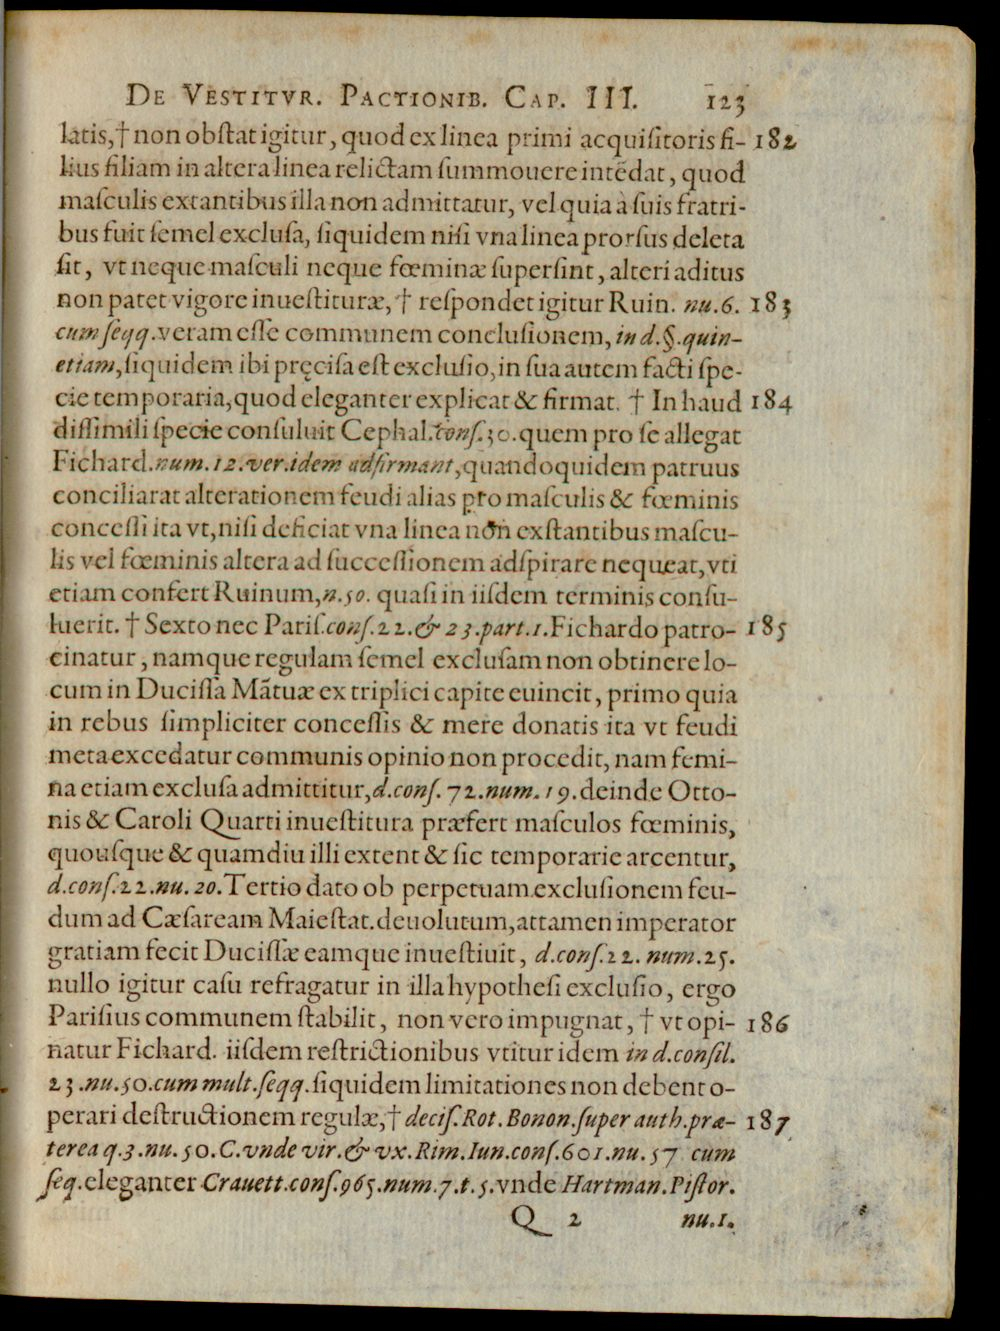 De Vestitvr. Pactionib. Cap. III. 123
latis,† non obſtat igitur, quod ex linea primi acquiſitoris fi- 182
lius filiam in altera linea relictam ſummouere intēdat, quod
maſculis extantibus illa non admittatur, vel quia à ſuis fratri-
bus fuit ſemel excluſa, ſiquidem niſi vna linea prorſus deleta
ſit, vt neque maſculi neque fœminæ ſuperſint, alteri aditus
non patet vigore inueſtituræ, † reſpondet igitur Ruin. nu.6. 183
cum ſeqq. veram eſſe communem concluſionem, in d.§.quin-
etiam, ſiquidem ibi pręciſa eſt excluſio, in ſua autem facti ſpe-
cie temporaria, quod eleganter explicat & firmat. † In haud 184
diſſimili ſpecie conſuluit Cephal. conſ.30. quem pro ſe allegat
Fichard. num.12.ver.idem adfirmant, quandoquidem patruus
conciliarat alterationem feudi alias pro maſculis & fœminis
conceſſi ita vt, niſi deficiat vna linea non exſtantibus maſcu-
lis vel fœminis altera ad ſucceſſionem adſpirare nequeat, vti
etiam confert Ruinum, n.50. quaſi in iiſdem terminis conſu-
luerit. † Sexto nec Pariſ. conſ.22.& 23.part.1. Fichardo patro- 185
cinatur, namque regulam ſemel excluſam non obtinere lo-
cum in Duciſſa Mātuæ ex triplici capite euincit, primo quia
in rebus ſimpliciter conceſſis & mere donatis ita vt feudi
meta excedatur communis opinio non procedit, nam femi-
na etiam excluſa admittitur, d.conſ. 72.num.19. deinde Otto-
nis & Caroli Quarti inueſtitura præfert maſculos fœminis,
quouſque & quamdiu illi extent & ſic temporarie arcentur,
d.conſ.22.nu.20. Tertio dato ob perpetuam excluſionem feu-
dum ad Cæſaream Maieſtat. deuolutum, attamen imperator
gratiam fecit Duciſſæ eamque inueſtiuit, d.conſ.22. num.25.
nullo igitur caſu refragatur in illa hypotheſi excluſio, ergo
Pariſius communem ſtabilit, non vero impugnat, † vt opi- 186
natur Fichard. iiſdem reſtrictionibus vtitur idem in d.conſil.
23.nu.50.cum mult.ſeqq. ſiquidem limitationes non debent o-
perari deſtructionem regulæ, † deciſ.Rot.Bonon.ſuper auth.præ- 187
terea q.3.nu.50.C.vnde vir.& vx.Rim.Iun.conſ.601.nu.57 cum
ſeq. eleganter Crauett.conſ.965.num.7.t.5. vnde Hartman.Piſtor.
Q 2 nu.1.